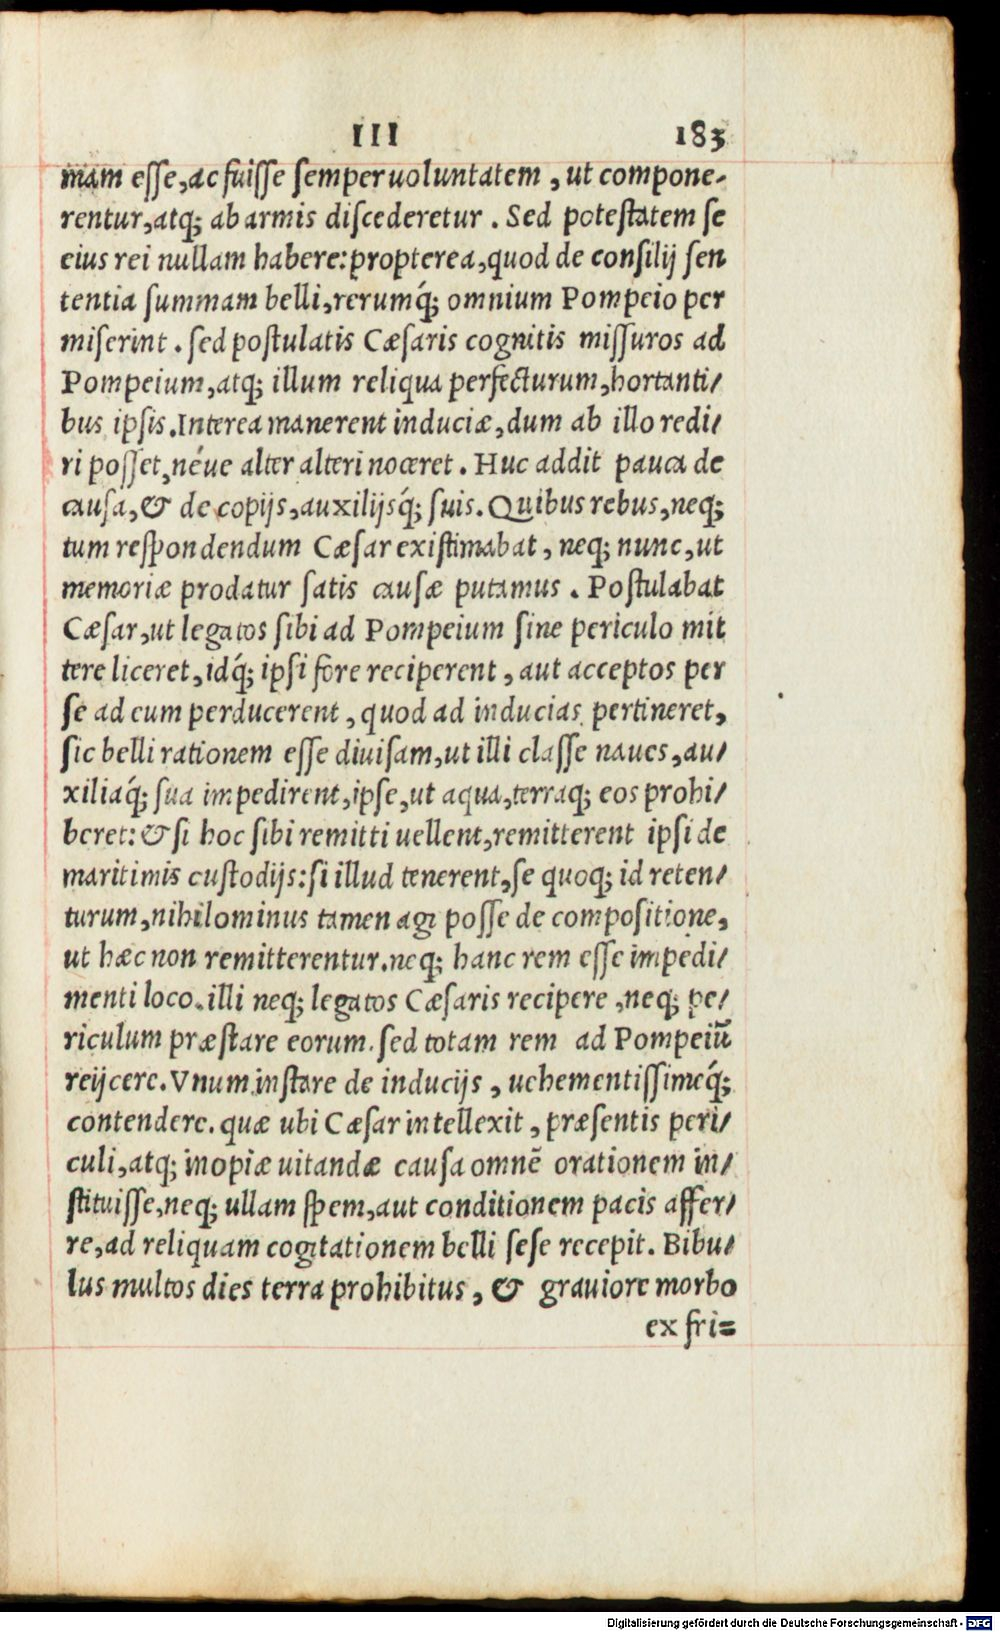 III 183
mam esse, ac fuisse semper uoluntatem, ut compone-
rentur, atq; ab armis discederetur. Sed potestatem se
eius rei nullam habere: propterea, quod de consilij sen
tentia summam belli, rerumq́; omnium Pompeio per
miserint. sed postulatis Cæsaris cognitis missuros ad
Pompeium, atq; illum reliqua perfecturum, hortanti/
bus ipsis. Interea manerent induciæ, dum ab illo redi/
ri posset, néue alter alteri noceret. Huc addit pauca de
causa, & de copijs, auxilijsq́; suis. Quibus rebus, neq;
tum respondendum Cæsar existimabat, neq; nunc, ut
memoriæ prodatur satis causæ putamus. Postulabat
Cæsar, ut legatos sibi ad Pompeium sine periculo mit
tere liceret, idq́; ipsi fore reciperent, aut acceptos per
se ad eum perducerent, quod ad inducias pertineret,
sic belli rationem esse diuisam, ut illi classe naues, au/
xiliaq́; sua impedirent, ipse, ut aqua, terraq; eos prohi/
beret: & si hoc sibi remitti uellent, remitterent ipsi de
maritimis custodijs: si illud tenerent, se quoq; id reten/
turum, nihilominus tamen agi posse de compositione,
ut hæc non remitterentur. neq; hanc rem esse impedi/
menti loco. illi neq; legatos Cæsaris recipere, neq; pe/
riculum præstare eorum. sed totam rem ad Pompeiū
reijcere. Vnum instare de inducijs, uehementissimeq́;
contendere. quæ ubi Cæsar intellexit, præsentis peri/
culi, atq; inopiæ uitandæ causa omnē orationem in/
stituisse, neq; ullam spem, aut conditionem pacis affer/
re, ad reliquam cogitationem belli sese recepit. Bibu/
lus multos dies terra prohibitus, & grauiore morbo
ex fri=
Digitalisierung gefördert durch die Deutsche Forschungsgemeinschaft - DFG